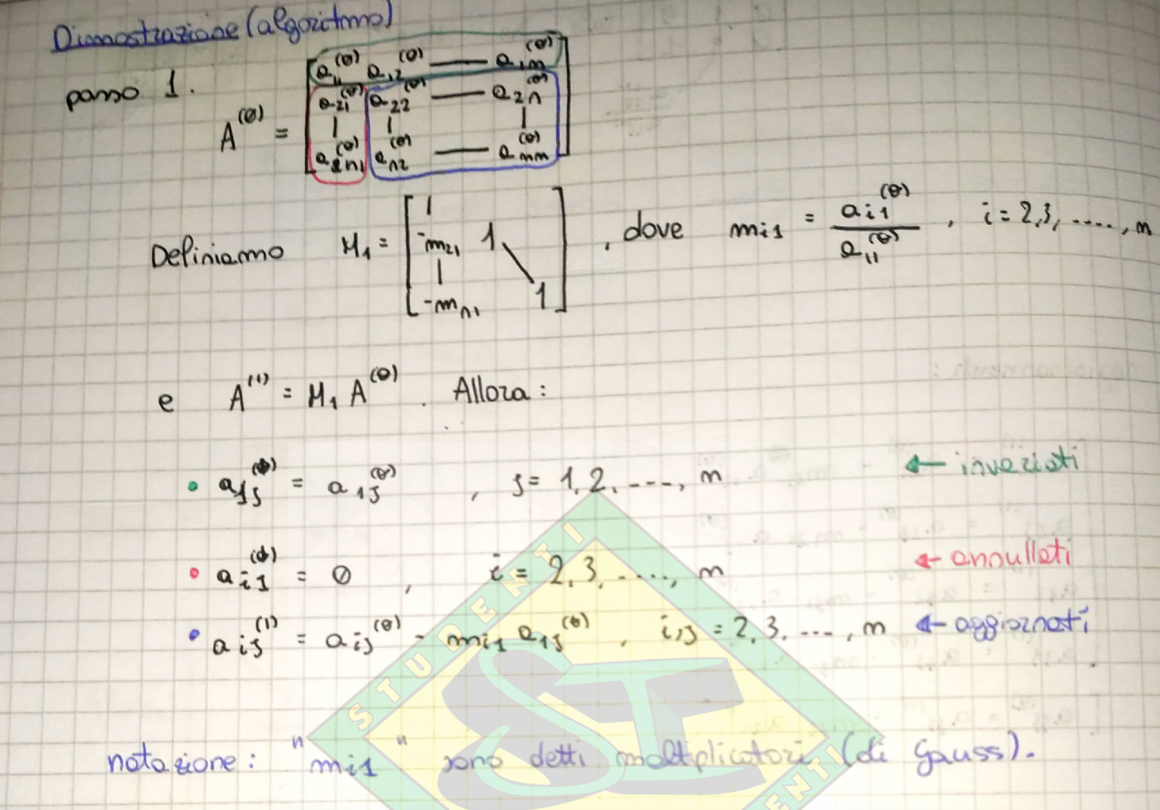 Dimostrazione (algoritmo)
passo 1.
A^(0) = [ a_11^(0) a_12^(0) — a_1n^(0)
a_21^(0) a_22^(0) — a_2n^(0)
| | |
a_n1^(0) a_n2^(0) — a_nn^(0) ]
Definiamo M_1 = [ 1
-m_21 1
| \
-m_n1 1 ] , dove m_i1 = a_i1^(0) / a_11^(0) , i = 2,3, ....., n
e A^(1) = M_1 A^(0) . Allora :
• a_1j^(1) = a_1j^(0) , j = 1,2, ---, n ← invariati
• a_i1^(1) = 0 , i = 2,3, ....., n ← annullati
• a_ij^(1) = a_ij^(0) - m_i1 a_1j^(0) , i,j = 2,3, ---, n ← aggiornati
notazione : "m_i1" sono detti moltiplicatori (di Gauss).
STUDENTI
SI
ENTI